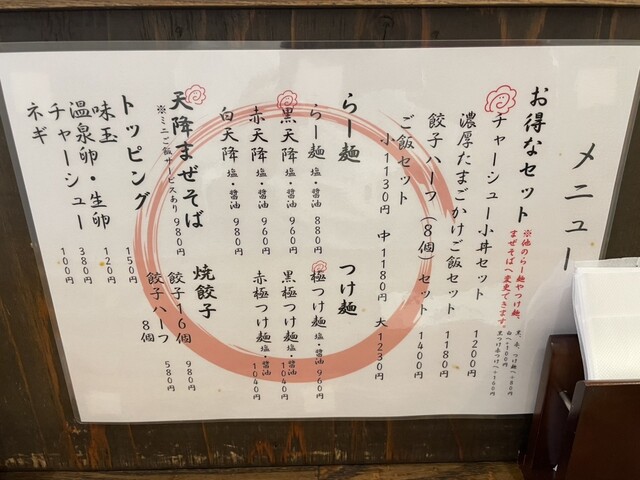 メニュー
お得なセット
※他のらー麺やつけ麺、
まぜそばへ変更できます。
黒、赤、つけ麺へ+80円
白へ+100円
黒つけ赤つけへ+160円
チャーシュー小丼セット 1200円
濃厚たまごかけご飯セット 1180円
餃子ハーフ（8個）セット 1400円
ご飯セット
小1130円 中1180円 大1230円
らー麺
らー麺 塩・醤油 880円
黒天降 塩・醤油 960円
赤天降 塩・醤油 960円
白天降 塩・醤油 980円
つけ麺
極つけ麺 塩・醤油 960円
黒極つけ麺 塩・醤油 1040円
赤極つけ麺 塩・醤油 1040円
天降まぜそば 980円
※ミニご飯サービスあり
焼餃子
餃子16個 980円
餃子ハーフ 8個 580円
トッピング
味玉 150円
温泉卵・生卵 120円
チャーシュー 380円
ネギ 100円